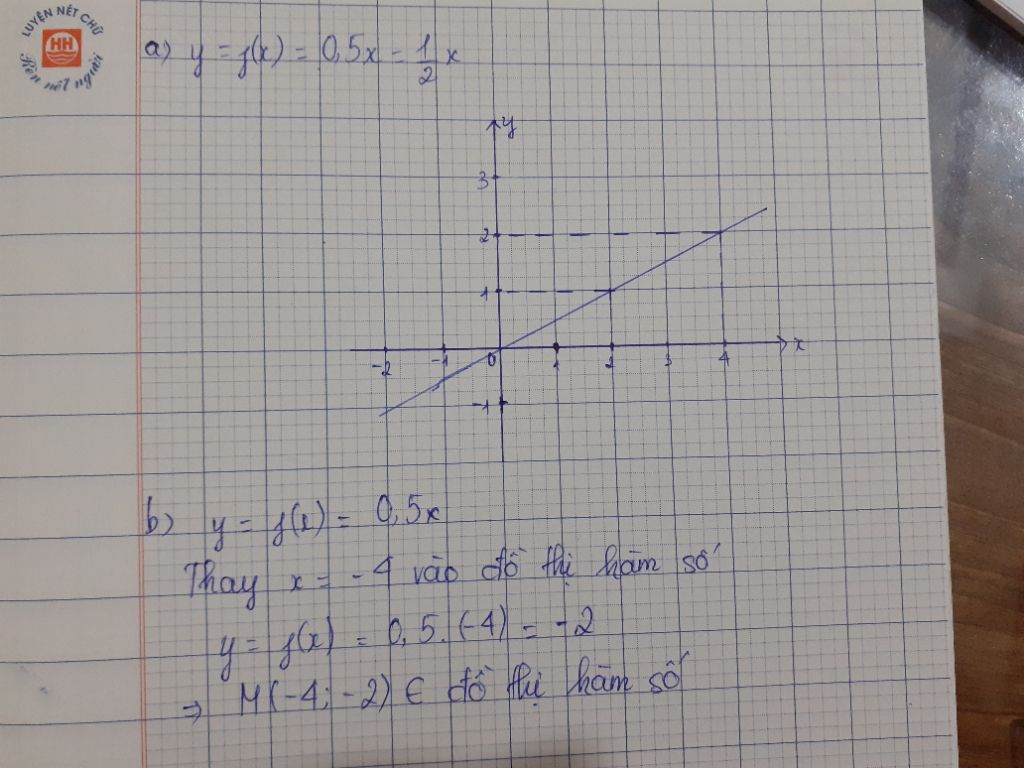 LUYỆN NÉT CHỮ
HH
Rèn nết người
a) y = f(x) = 0,5x = 1/2 x
y
3
2
1
-2 -1 0 1 2 3 4 x
-1
b) y = f(x) = 0,5x
Thay x = -4 vào đồ thị hàm số
y = f(x) = 0,5.(-4) = -2
⇒ M(-4; -2) ∈ đồ thị hàm số